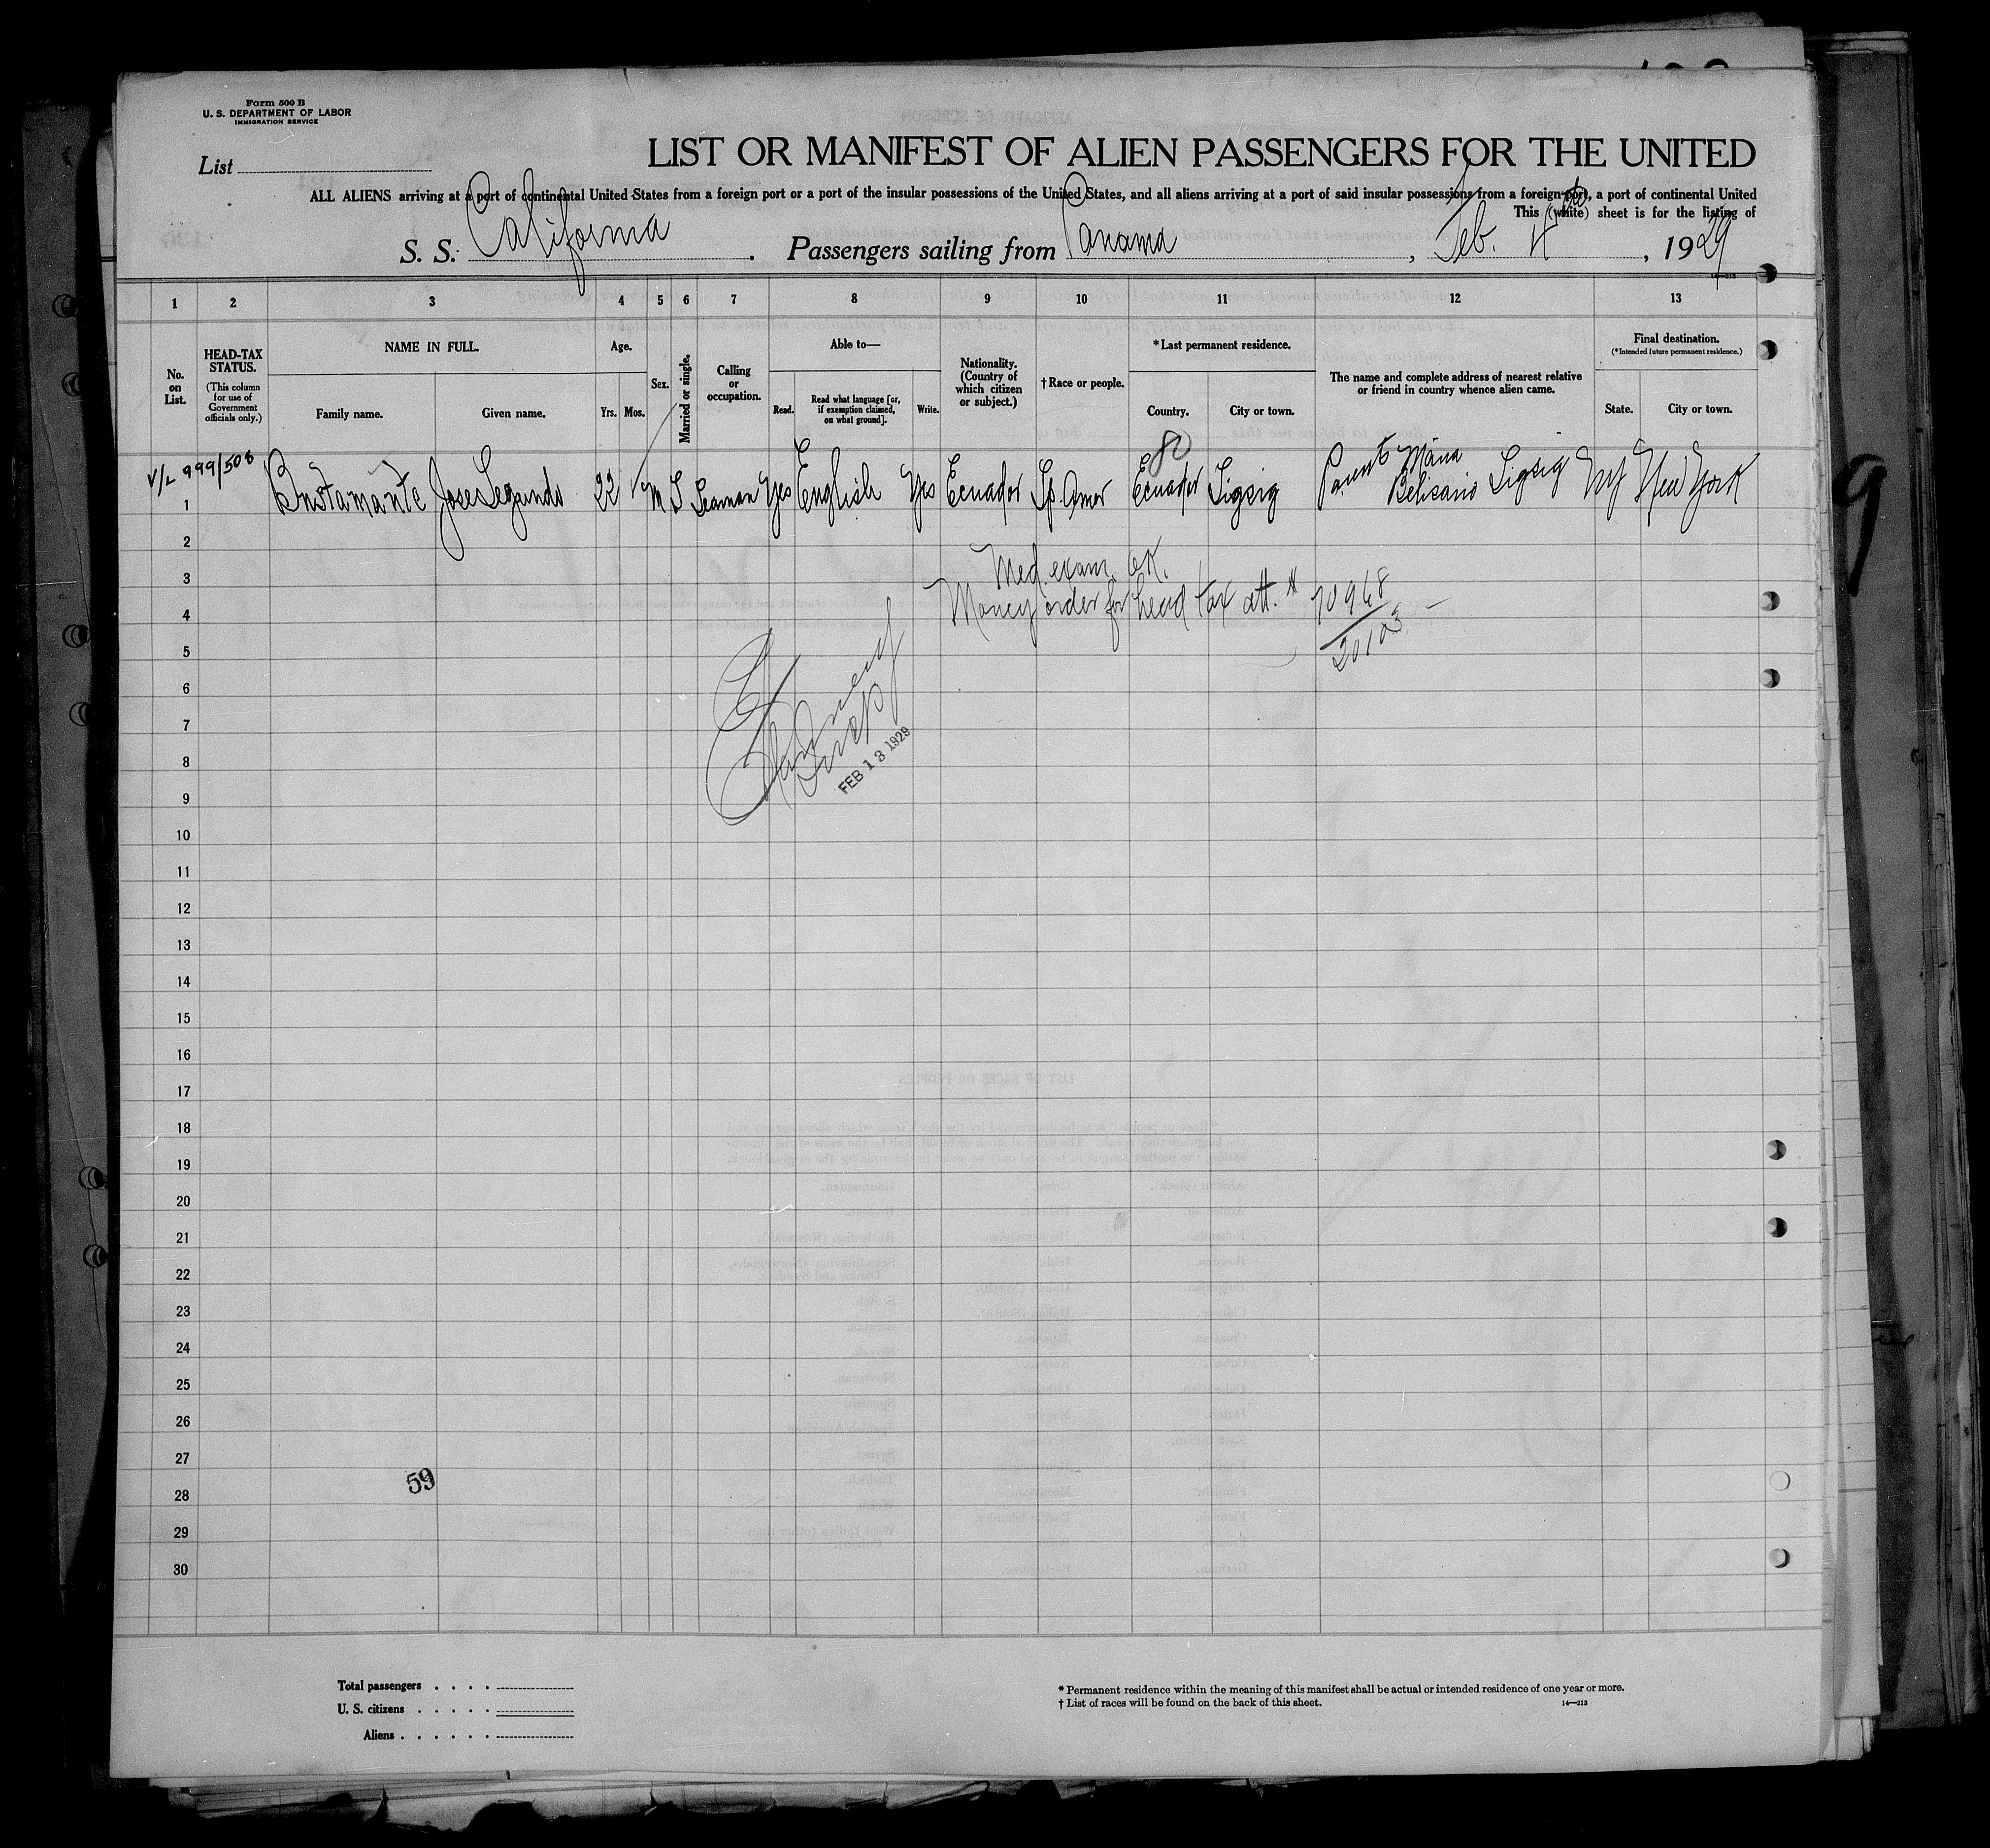 Form 500 B
U. S. DEPARTMENT OF LABOR
IMMIGRATION SERVICE
List
LIST OR MANIFEST OF ALIEN PASSENGERS FOR THE UNITED
ALL ALIENS arriving at a port of continental United States from a foreign port or a port of the insular possessions of the United States, and all aliens arriving at a port of said insular possessions from a foreign port, a port of continental United
This (white) sheet is for the listing of
S. S. California. Passengers sailing from Panama, Feb. 4th, 1929
14—213
1 2 3 4 5 6 7 8 9 10 11 12 13
No. on List.
HEAD-TAX STATUS.
(This column for use of Government officials only.)
NAME IN FULL.
Family name.
Given name.
Age.
Yrs. Mos.
Sex.
Married or single.
Calling or occupation.
Able to—
Read.
Read what language [or, if exemption claimed, on what ground].
Write.
Nationality. (Country of which citizen or subject.)
† Race or people.
* Last permanent residence.
Country.
City or town.
The name and complete address of nearest relative or friend in country whence alien came.
Final destination.
(* Intended future permanent residence.)
State.
City or town.
999/508
80
1 Bustamante Jose Segundo 22 M S Seaman Yes English Yes Ecuador Sp. Amer Ecuador Sigsig Parents Maria Belisario Sigsig NY New York
2
Med. exam. OK.
3
Money order for head tax att. # 70968
4
20103
5
6
7
8
FEB 18 1929
9
10
11
12
13
14
15
16
17
18
19
20
21
22
23
24
25
26
27
59
28
29
30
Total passengers
U. S. citizens
Aliens
* Permanent residence within the meaning of this manifest shall be actual or intended residence of one year or more.
† List of races will be found on the back of this sheet.
14—213
9